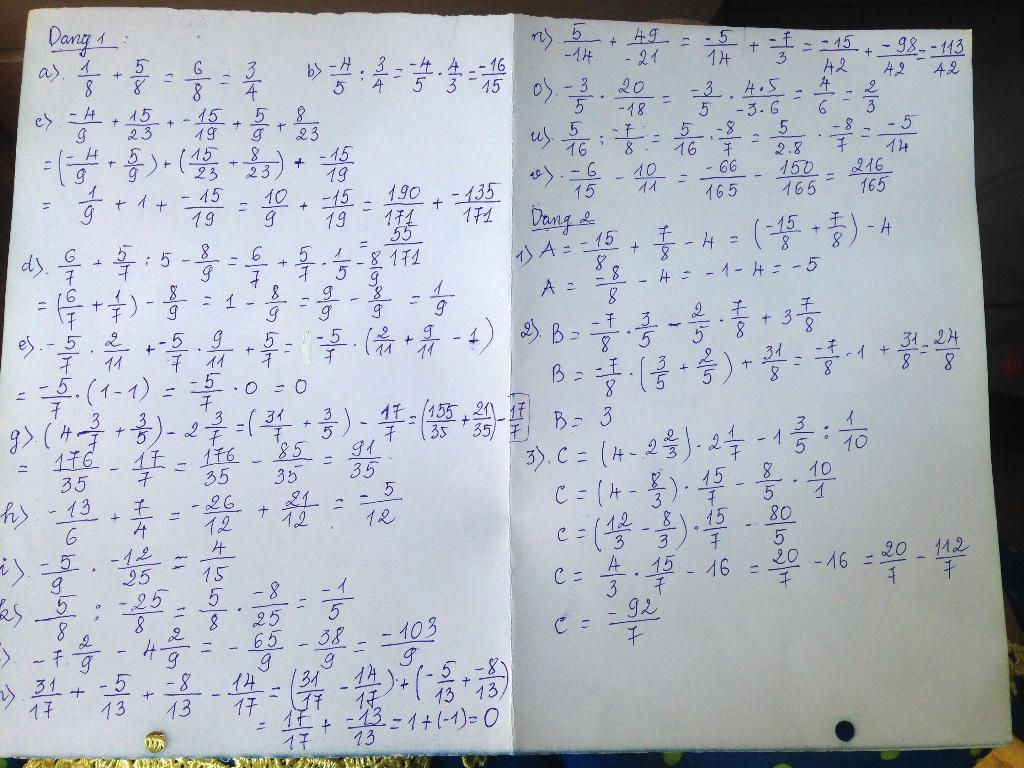 Dạng 1 :
a). 1/8 + 5/8 = 6/8 = 3/4
b) -4/5 : 3/4 = -4/5 . 4/3 = -16/15
c). -4/9 + 15/23 + -15/19 + 5/9 + 8/23
= (-4/9 + 5/9) + (15/23 + 8/23) + -15/19
= 1/9 + 1 + -15/19 = 10/9 + -15/19 = 190/171 + -135/171
= 55/171
d). 6/7 + 5/7 : 5 - 8/9 = 6/7 + 5/7 . 1/5 - 8/9
= (6/7 + 1/7) - 8/9 = 1 - 8/9 = 9/9 - 8/9 = 1/9
e). -5/7 . 2/11 + -5/7 . 9/11 + 5/7 = -5/7 . (2/11 + 9/11 - 1)
= -5/7 . (1-1) = -5/7 . 0 = 0
g). (4 3/7 + 3/5) - 2 3/7 = (31/7 + 3/5) - 17/7 = (155/35 + 21/35) - 17/7
= 176/35 - 17/7 = 176/35 - 85/35 = 91/35
h) -13/6 + 7/4 = -26/12 + 21/12 = -5/12
i). -5/9 . -12/25 = 4/15
k). 5/8 : -25/8 = 5/8 . -8/25 = -1/5
). -7 2/9 - 4 2/9 = -65/9 - 38/9 = -103/9
). 31/17 + -5/13 + -8/13 - 14/17 = (31/17 - 14/17) + (-5/13 + -8/13)
= 17/17 + -13/13 = 1 + (-1) = 0
n). 5/-14 + 49/-21 = -5/14 + -7/3 = -15/42 + -98/42 = -113/42
o). -3/5 . 20/-18 = -3/5 . 4.5/-3.6 = 4/6 = 2/3
u). 5/16 : -7/8 = 5/16 . -8/7 = 5/2.8 . -8/7 = -5/14
v). -6/15 - 10/11 = -66/165 - 150/165 = 216/165
Dạng 2
1) A = -15/8 + 7/8 - 4 = (-15/8 + 7/8) - 4
A = -8/8 - 4 = -1 - 4 = -5
2). B = -7/8 . 3/5 - 2/5 . 7/8 + 3 7/8
B = -7/8 . (3/5 + 2/5) + 31/8 = -7/8 . 1 + 31/8 = 24/8
B = 3
3). C = (4 - 2 2/3) . 2 1/7 - 1 3/5 : 1/10
C = (4 - 8/3) . 15/7 - 8/5 . 10/1
C = (12/3 - 8/3) . 15/7 - 80/5
C = 4/3 . 15/7 - 16 = 20/7 - 16 = 20/7 - 112/7
C = -92/7